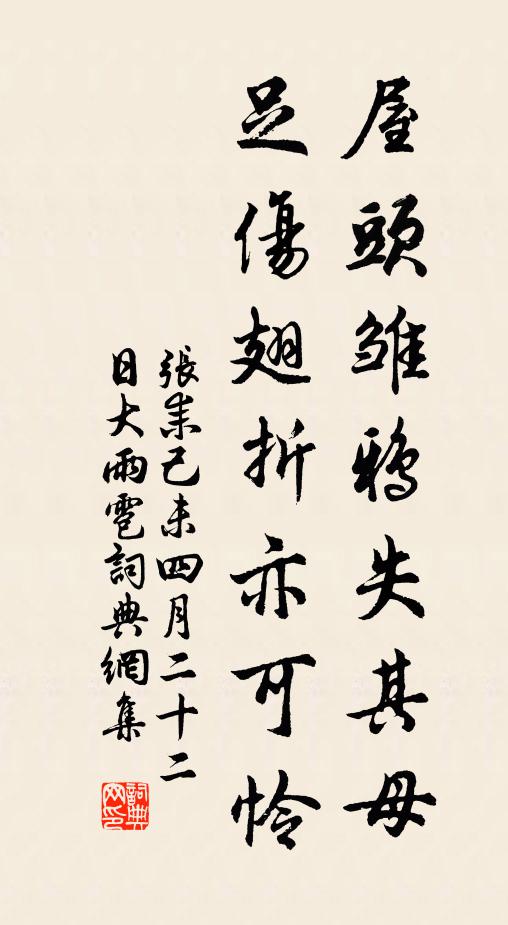 屋頭雏鴉失其母
足傷翅折亦可怜
張耒己未四月二十二
日大雨雹詞典網集
詞典网印